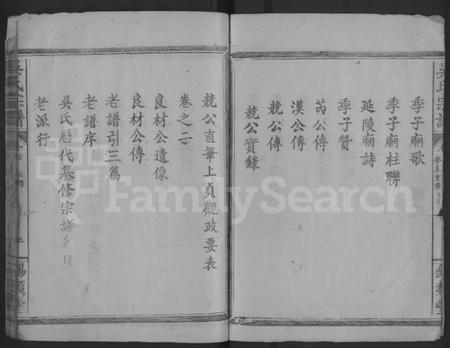 季子廟歌
季子廟柱聯
延陵廟詩
季子贊
芮公傳
漢公傳
兢公傳
兢公實錄
兢公直筆上貞觀政要表
卷之二
良材公遺像
良材公傳
老譜引三篇
老譜序
吳氏歷代纂修宗譜名目
老派行
吳氏宗譜
FamilySearch